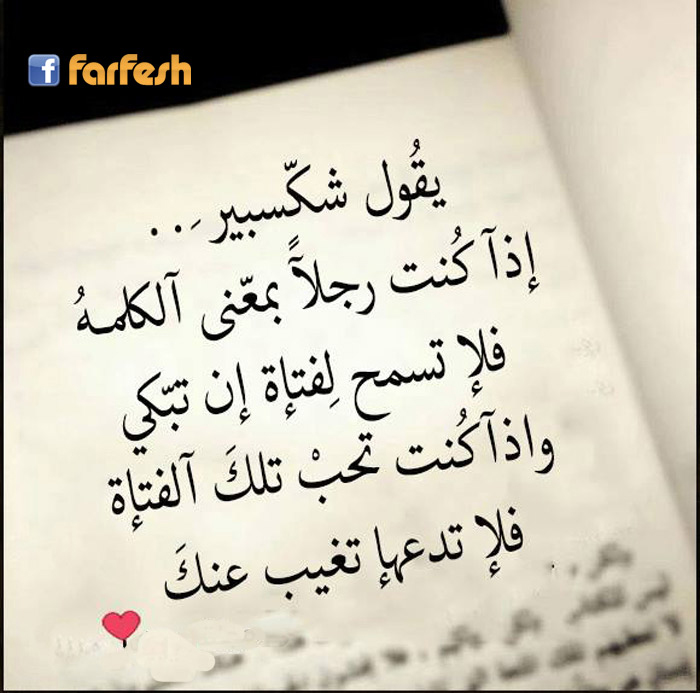 farfesh
يقُول شكّسبير ِ . .
إذآ كُنت رجلاً بمعّنى آلكلمـهُ
فلإ تسمح لِفتإة إن تبّكي
واذآ كُنت تحبْ تلكَ آلفتإة
فلإ تدعهإ تغيب عنكَ